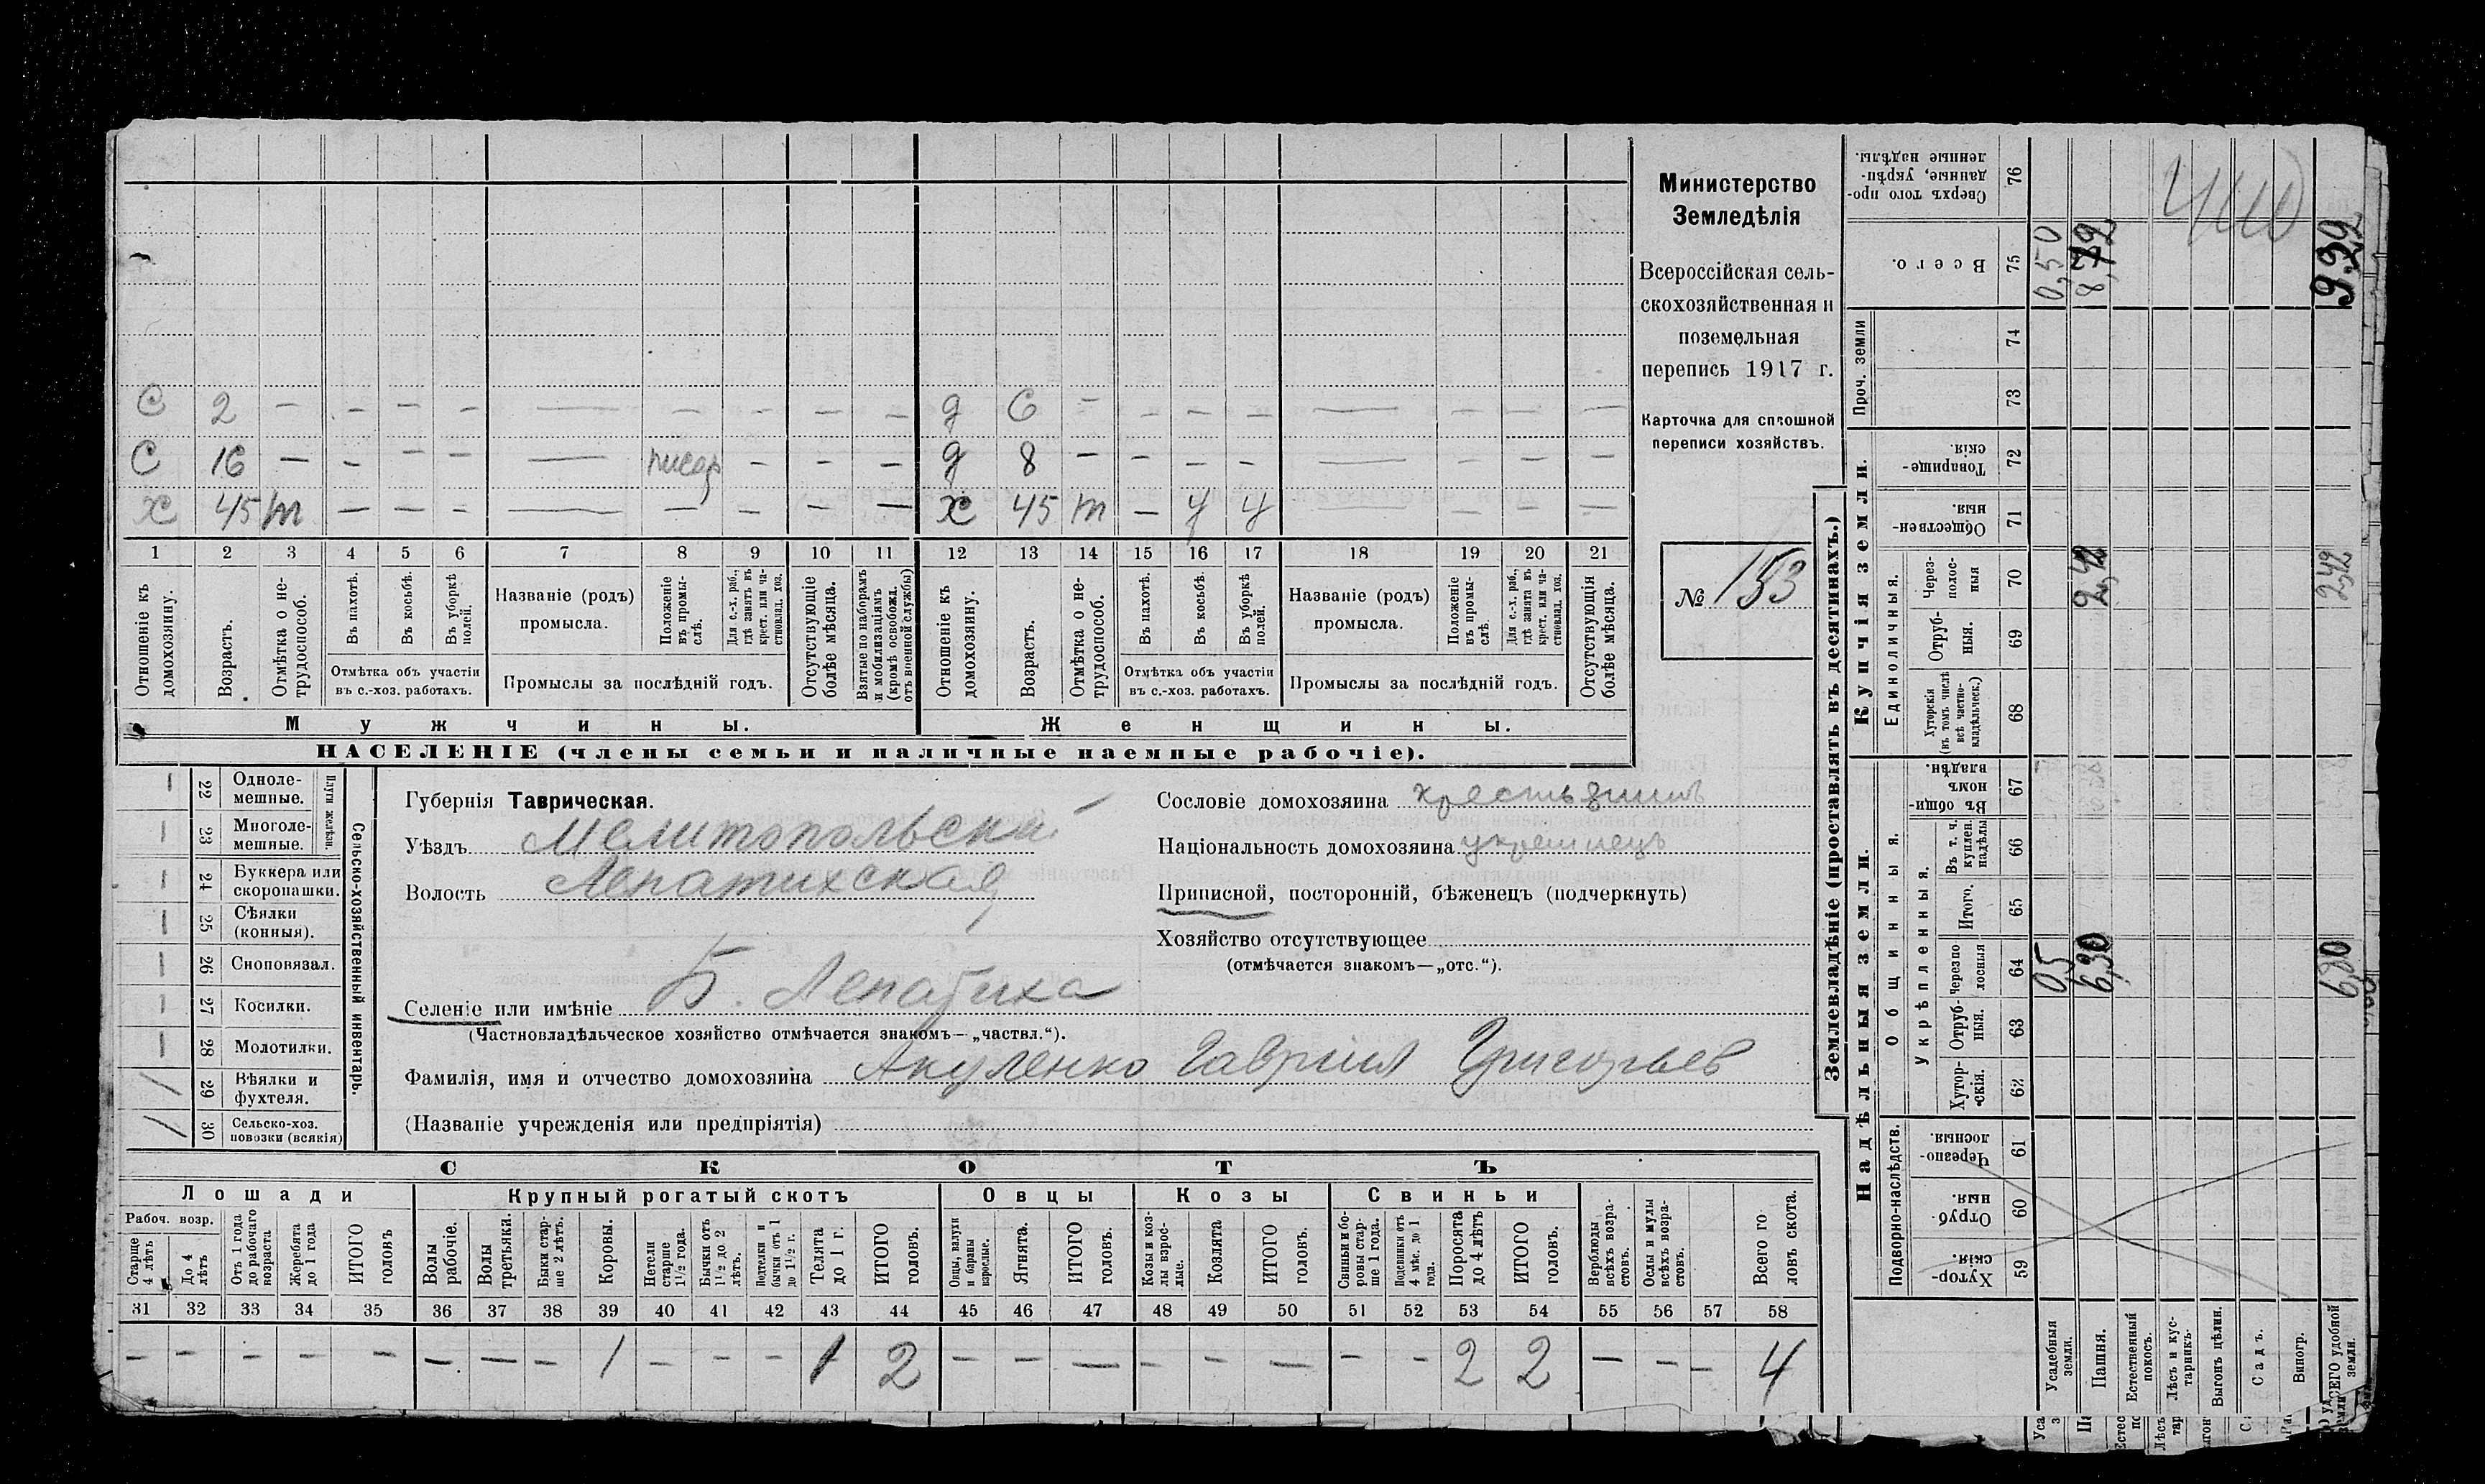 Министерство
Земледѣлія
Всероссійская сель-
скохозяйственная и
поземельная
перепись 1917 г.
Карточка для сплошной
переписи хозяйствъ.
№ 153
С 2 — — — — — — — — — д 6 — — — — — — — —
С 16 — — — — — писар — — — д 8 — — — — — — — —
х 45 т — — — — — — — — х 45 т — у у — — — —
1 2 3 4 5 6 7 8 9 10 11 12 13 14 15 16 17 18 19 20 21
Отношеніе къ домохозяину.
Возрастъ.
Отмѣтка о не-трудоспособ.
Въ пахотѣ.
Въ косьбѣ.
Въ уборкѣ полей.
Отмѣтка объ участіи
въ с.-хоз. работахъ.
Названіе (родъ)
промысла.
Положеніе въ промы-слѣ.
Для с.-х. раб., гдѣ занятъ въ крест. или ча-стновлад. хоз.
Промыслы за послѣдній годъ.
Отсутствующіе болѣе мѣсяца.
Взятые по наборамъ и мобилизаціямъ (кромѣ освобожд. отъ военной службы)
Отношеніе къ домохозяину.
Возрастъ.
Отмѣтка о не-трудоспособ.
Въ пахотѣ.
Въ косьбѣ.
Въ уборкѣ полей.
Отмѣтка объ участіи
въ с.-хоз. работахъ.
Названіе (родъ)
промысла.
Положеніе въ промы-слѣ
Для с.-х. раб., гдѣ занята въ крест. или ча-стновлад. хоз.
Промыслы за послѣдній годъ.
Отсутствующія болѣе мѣсяца.
Мужчины.
Женщины.
НАСЕЛЕНІЕ (члены семьи и наличные наемные рабочіе).
Сельско-хозяйственный инвентарь.
Плуги желѣзн.
— 22 Одноле-мешные.
— 23 Многоле-мешные.
— 24 Буккера или скоропашки.
— 25 Сѣялки (конныя).
— 26 Сноповязал.
— 27 Косилки.
— 28 Молотилки.
— 29 Вѣялки и фухтеля.
— 30 Сельско-хоз. повозки (всякія)
Губернія Таврическая.
Уѣздъ Мелитопольскій
Волость Лепатихская
Селеніе или имѣніе Б. Лепатиха
(Частновладѣльческое хозяйство отмѣчается знакомъ—„частвл.“).
Фамилія, имя и отчество домохозяина Акуленко Гавриил Григорьев
(Названіе учрежденія или предпріятія)
Сословіе домохозяина крестьянинъ
Національность домохозяина украинецъ
Приписной, посторонній, бѣженецъ (подчеркнуть)
Хозяйство отсутствующее
(отмѣчается знакомъ—„отс.“).
СКОТЪ
Лошади
Крупный рогатый скотъ
Овцы
Козы
Свиньи
Рабоч. возр.
Старше 4 лѣтъ
До 4 лѣтъ
Отъ 1 года до рабочаго возраста
Жеребята до 1 года
ИТОГО головъ
Волы рабочіе.
Волы третьяки.
Быки стар-ше 2 лѣтъ.
Коровы.
Нетели старше 1½ года.
Бычки отъ 1½ до 2 лѣтъ.
Подтелки и бычки отъ 1 до 1½ г.
Телята до 1 г.
ИТОГО головъ.
Овцы, валухи и бараны взрослые.
Ягнята.
ИТОГО головъ.
Козы и коз-лы взрос-лые.
Козлята
ИТОГО головъ.
Свиньи и бо-ровы стар-ше 1 года.
Подсвинки отъ 4 мѣс. до 1 года.
Поросята до 4 лѣтъ
ИТОГО головъ.
Верблюды всѣхъ возра-стовъ.
Ослы и мулы всѣхъ возра-стовъ.
Всего го-ловъ скота.
31 32 33 34 35 36 37 38 39 40 41 42 43 44 45 46 47 48 49 50 51 52 53 54 55 56 57 58
— — — — — — — — 1 — — — 1 2 — — — — — — — — 2 2 — — — 4
Землевладѣніе (проставлять въ десятинахъ.)
Надѣльныя земли.
Купчія земли.
Проч. земли
Подворно-наслѣдств.
Общинныя.
Укрѣпленныя.
Единоличныя.
Хутор-скія. 59
Отруб-ныя. 60
Черезпо-лосныя. 61
Хутор-скія. 62
Отруб-ныя. 63
Черезпо-лосныя 64
Итого. 65
Въ т. ч. куплен. надѣлы 66
Въ общин-номъ владѣн. 67
Хуторскія (въ томъ числѣ всѣ частно-владѣльческ.) 68
Отруб-ныя. 69
Через-полос-ныя 70
Обществен-ныя. 71
Товарище-скія. 72
73
74
Всего. 75
Сверхъ того про-данные, укрѣп-ленные надѣлы. 76
Усадебныя земли. 05 0,550
Пашня. 6,30 2,42 8,72
Естественный покосъ.
Лѣсъ и кус-тарникъ.
Выгонъ цѣлин.
Садъ.
Виногр.
ВСЕГО удобной земли. 2,42